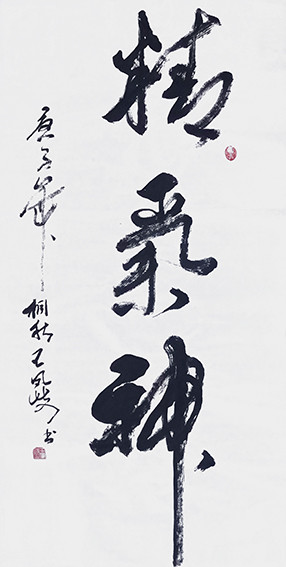 精氣神
庚子年桐秋王书